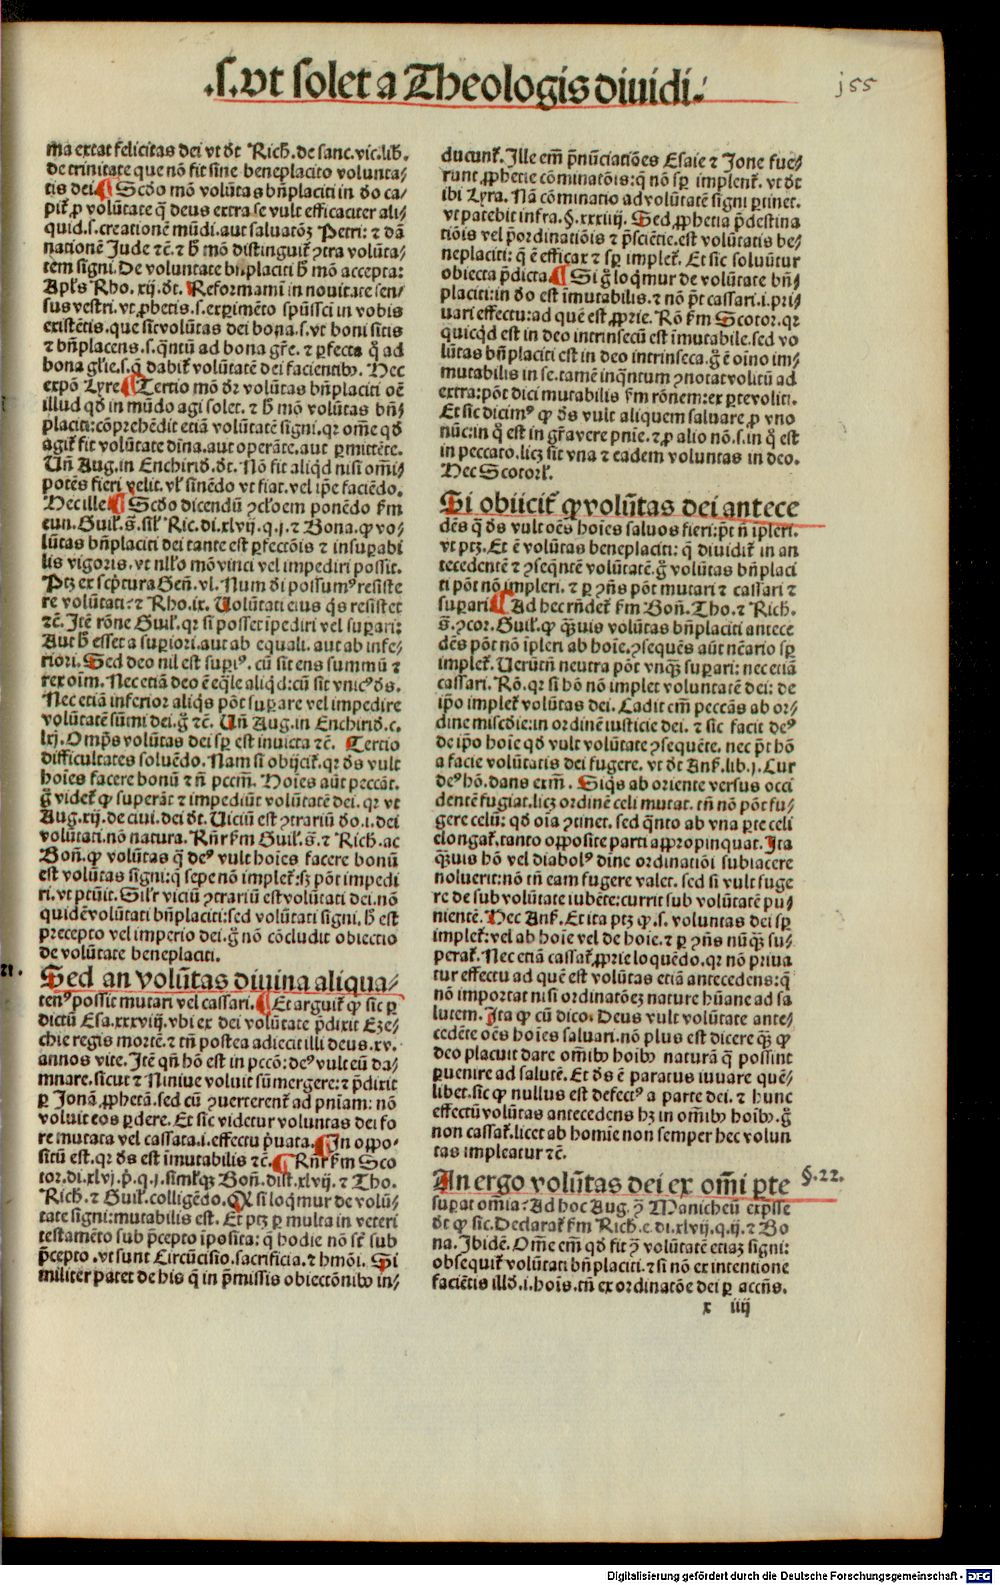 .s. vt solet a Theologis diuidi.
j55
ma extat felicitas dei vt dt Rich. de sanc. vic. lib.
de trinitate que nō fit sine beneplacito volunta-
tis dei. ¶ Scdo mō volūtas bn̄placiti in do ca-
pit᷑ ꝓ volūtate q̄ deus extra se vult efficaciter ali-
quid. s. creationē mūdi. aut saluatōꝫ Petri: ⁊ dā
nationē Jude ⁊c̄. ⁊ h̄ mō distinguit᷑ ꝯtra volūta-
tem signi. De voluntate bn̄placiti h̄ mō accepta:
Apl's Rho. xij. dt. Reformamī in nouitate sen-
sus vestri. vt ꝓbetis. s. experimēto spūssci in vobis
existētis. que sit volūtas dei bona. s. vt boni sitis
⁊ bn̄placens. s. q̄ntū ad bona gr̄e. ⁊ ꝑfecta q̊ ad
bona gl'ie. s. q̄ dabit᷑ volūtatē dei facientibꝰ. Hec
expō Lyre ¶ Tertio mō dr̄ volūtas bn̄placiti oē
illud qd in mūdo agi solet. ⁊ h̄ mō volūtas bn̄-
placiti: cōprehēdit etiā volūtatē signi. qr om̄e qd
agit᷑ fit volūtate diīna. aut operāte. aut ꝑmittēte.
Un̄ Aug. in Enchirid. dt. Nō fit aliqd nisi om̄i-
potēs fieri velit. vl' sinēdo vt fiat. vel ip̄e faciēdo.
Hec ille ¶ Scdo dicendū ꝯcl'oem ponēdo fm
eun. Guil. s̄. sil' Ric. di. xlvij. q. j. ⁊ Bona. ꝙ vo-
lūtas bn̄placiti dei tante est ꝑfectōis ⁊ insuꝑabi
lis vigoris. vt nl'lo mō vinci vel impediri possit.
Ptꝫ ex scptura Gen̄. vl. Num di possumꝰ resiste
re volūtati: ⁊ Rho. ix. Uolūtati eius q̊s resistet
⁊c̄. Itē rōne Guil. qr si posset īpediri vel suꝑari:
Aut h̄ esset a suꝑiori. aut ab equali. aut ab infe-
riori. Sed deo nil est suꝑiꝰ. cū sit ens summū ⁊
rex oīm. Nec etiā deo ē eq̄le aliqd: cū sit vnicꝰ ds.
Nec etiā inferior aliqs pōt suꝑare vel impedire
volūtatē sūmi dei. g̊ ⁊c̄. Un̄ Aug. in Enchirid. c.
lxj. Omp̄s volūtas dei sꝑ est inuicta ⁊c̄. Tertio
difficultates soluēdo. Nam si obijcit᷑. qr ds vult
hoīes facere bonū ⁊ n̄ pccm̄. Hoīes aūt peccāt.
g̊ videt᷑ ꝙ superāt ⁊ impediūt volūtatē dei. qr vt
Aug. xij. de ciui. dei dt. Uiciū est ꝯtrariū do. i. dei
volūtati. nō natura. Rn̄r fm Guil. s̄. ⁊ Rich. ac
Bon̄. ꝙ volūtas q̄ deꝰ vult hoīes facere bonū
est volūtas signi: q̄ sepe nō implet᷑: sꝫ pōt impedi
ri. vt ptuīt. Silr viciū ꝯtrariū est volūtati dei. nō
quidē volūtati bn̄placiti: sed volūtati signi. h̄ est
precepto vel imperio dei. g̊ nō cōcludit obiectio
de volūtate beneplaciti.
21.
Sed an volūtas diuina aliqua-
tenꝰ possit mutari vel cassari. ¶ Et arguit᷑ ꝙ sic ꝑ
dictū Esa. xxxviij. vbi ex dei volūtate p̄dixit Eze-
chie regis mortē. ⁊ tn̄ postea adiecit illi deus. xv.
annos vite. Itē qn̄ hō est in pccō: deꝰ vult eū da-
mnare. sicut ⁊ Niniue voluit sūmergere: ⁊ p̄dixit
ꝑ Jonā ꝓphetā. sed cū ꝯuerterent᷑ ad pn̄iam: nō
voluit eos ꝑdere. Et sic videtur voluntas dei fo
re mutata vel cassata. i. effectu p̄uata. ¶ In oppo-
situ est. qr ds est īmutabilis ⁊c̄. ¶ Rn̄r fm Sco
tor. di. xlvj. p̄. q. j. simlꝗꝫ Bon̄. dist. xlvij. ⁊ Tho.
Rich. ⁊ Guil. colligēdo. Q si loq̄mur de volū-
tate signi: mutabilis est. Et ptꝫ ꝑ multa in veteri
testamēto sub p̄cepto īposita: q̄ hodie nō st̄ sub
p̄cepto. vt sunt Circūcisio. sacrificia. ⁊ hmōi. Si
militer patet de his q̄ in p̄missis obiectōnibꝰ in-
ducunt᷑. Ille em̄ p̄nūciatiōes Esaie ⁊ Jone fue-
runt ꝓphetie cōminatōis: q̄ nō sꝑ implent᷑. vt dt
ibi Lyra. Nā cōminatio ad volūtatē signi ꝑtinet.
vt patebit infra. §. xxxiiij. Sed ꝓphetia p̄destina
tiōis vel p̄ordinatiōis ⁊ p̄sciētie. est volūtatis be-
neplaciti: q̄ ē efficax ⁊ sꝑ implet᷑. Et sic soluūtur
obiecta p̄dicta. ¶ Si g̊ loq̄mur de volūtate bn̄-
placiti: in do est īmutabilis. ⁊ nō pt cassari. i. pri-
uari effectu: ad quē est ꝓprie. Rō fm Scotor. qr
quicqd est in deo intrinsecū est īmutabile. sed vo
lūtas bn̄placiti est in deo intrinseca. g̊ ē oīno im-
mutabilis in se. tamē inq̄ntum ꝯnotat volitū ad
extra: pōt dici mutabilis fm rōnem: ex ꝑte voliti.
Et sic dicimꝰ ꝙ ds vult aliquem saluare ꝓ vno
nūc: in q̊ est in gr̄a vere pnie. ⁊ ꝓ alio nō. s. in q̊ est
in peccato. licꝫ sit vna ⁊ eadem voluntas in deo.
Hec Scotorl'.
Si obiicit᷑ ꝙ volūtas dei antece
dēs q̄ ds vult oēs hoīes saluos fieri: pt n̄ īpleri.
vt ptꝫ. Et ē volūtas beneplaciti: q̄ diuidit᷑ in an
tecedentē ⁊ ꝯseq̄ntē volūtatē. g̊ volūtas bn̄placi
ti pōt nō impleri. ⁊ ꝑ ꝯn̄s pōt mutari ⁊ cassari ⁊
suꝑari ¶ Ad hec rn̄det᷑ fm Bon̄. Tho. ⁊ Rich.
s̄. ꝯcor. Guil. ꝙ q̄uis volūtas bn̄placiti antece
dēs pōt nō īpleri ab hoīe. ꝯsequēs aūt n̄cario sꝑ
implet᷑. Uerūtn̄ neutra pōt vnq̄ suꝑari: nec etiā
cassari. Rō. qr si hō nō implet voluntatē dei: de
ip̄o implet᷑ volūtas dei. Cadit em̄ peccās ab or-
dine miscdie: in ordinē iusticie dei. ⁊ sic facit deꝰ
de ip̄o hoīe qd vult volūtate ꝯsequēte. nec pt hō
a facie volūtatis dei fugere. vt dt Anẜ. lib. j. Cur
deꝰ hō. dans exm̄. Siqs ab oriente versus occi
dentē fugiat. licꝫ ordinē celi mutat. tn̄ nō pōt fu-
gere celū: qd oīa ꝯtinet. sed q̄nto ab vna ꝑte celi
elongat᷑. tanto opposite parti appropinquat. Ita
q̄uis hō vel diabolꝰ diīne ordinatiōi subiacere
noluerit: nō tn̄ eam fugere valet. sed si vult fuge
re de sub volūtate iubēte: currit sub volūtatē pu-
nientē. Hec Anẜ. Et ita ptꝫ ꝙ. s. voluntas dei sꝑ
implet᷑: vel ab hoīe vel de hoīe. ⁊ ꝑ ꝯn̄s nūq̄ꝫ su-
perat᷑. Nec etiā cassat᷑ ꝓprie loquēdo. qr nō priua
tur effectu ad quē est volūtas etiā antecedens: q̄
nō importat nisi ordinatōeꝫ nature hūane ad sa
lutem. Ita ꝙ cū dico. Deus vult volūtate ante-
cedēte oēs hoīes saluari. nō plus est dicere q̄ꝫ ꝙ
deo placuit dare om̄ibꝰ hoībꝰ naturā q̄ possint
ꝑuenire ad salutē. Et ds ē paratus iuuare quē-
libet. sic ꝙ nullus est defectꝰ a parte dei. ⁊ hunc
effectū volūtas antecedens hꝫ in om̄ibꝰ hoībꝰ. g̊
non cassat᷑. licet ab homīe non semper hec volun
tas impleatur ⁊c̄.
An ergo volūtas dei ex om̄i ꝑte
§.22.
suꝑat omīa: Ad hoc Aug. ꝯ̄ Manicheū exp̄sse
dt ꝙ sic. Declarat᷑ fm Rich. e. di. xlvij. q. ij. ⁊ Bo
na. Ibidē. Om̄e em̄ qd fit ꝯ̄ volūtatē etiaꝫ signi:
obsequit᷑ volūtati bn̄placiti. ⁊ si nō ex intentione
faciētis illd. i. hoīs. tn̄ ex ordinatōe dei ꝑ accn̄s.
x iiij
Digitalisierung gefördert durch die Deutsche Forschungsgemeinschaft - DFG